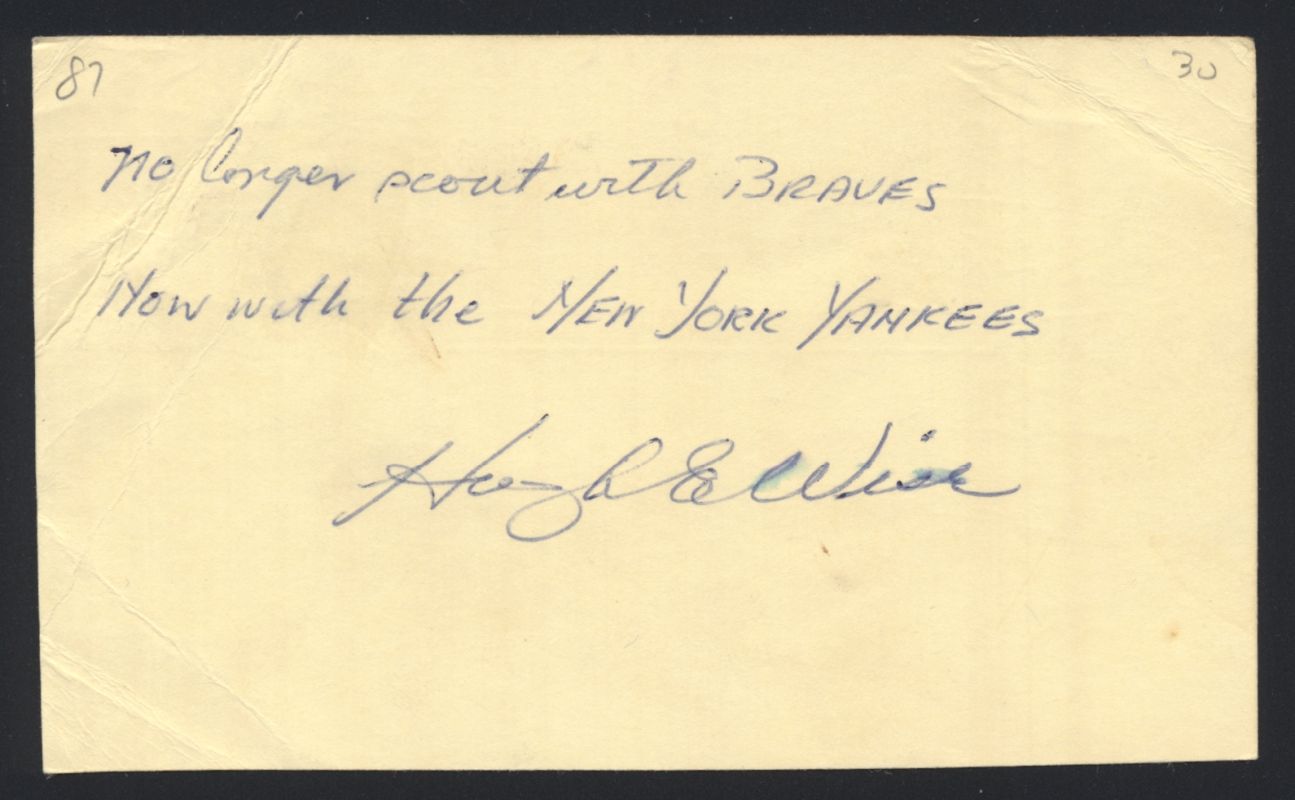 87
30
No longer scout with BRAVES
Now with the NEW YORK YANKEES
Hugh E Wise